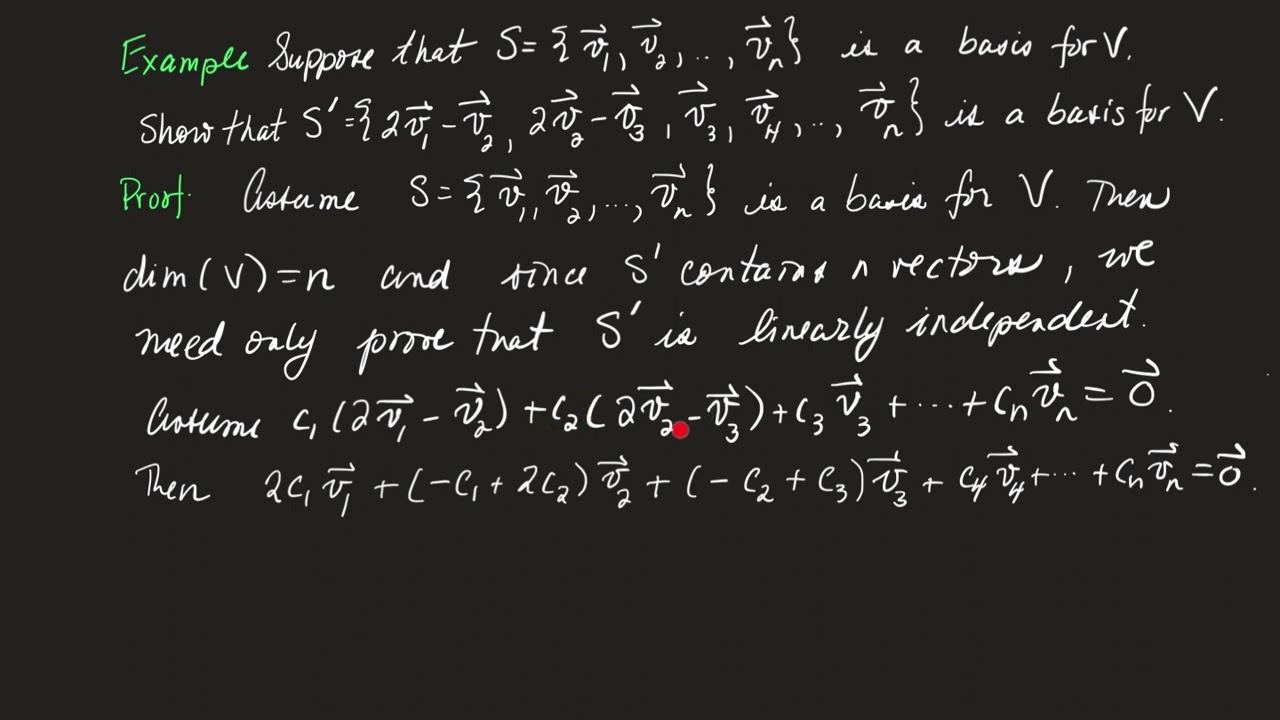 Example Suppose that S = {v⃗₁, v⃗₂, .., v⃗ₙ} is a basis for V.
Show that S' = {2v⃗₁ - v⃗₂, 2v⃗₂ - v⃗₃, v⃗₃, v⃗₄, .., v⃗ₙ} is a basis for V.
Proof. Assume S = {v⃗₁, v⃗₂, ..., v⃗ₙ} is a basis for V. Then
dim(V) = n and since S' contains n vectors, we
need only prove that S' is linearly independent.
Assume c₁(2v⃗₁ - v⃗₂) + c₂(2v⃗₂ - v⃗₃) + c₃v⃗₃ + ⋯ + cₙv⃗ₙ = 0⃗.
Then 2c₁v⃗₁ + (-c₁ + 2c₂)v⃗₂ + (-c₂ + c₃)v⃗₃ + c₄v⃗₄ + ⋯ + cₙv⃗ₙ = 0⃗.